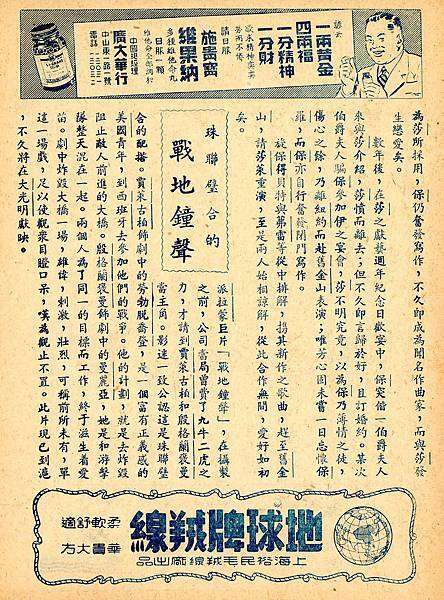 諺云
一兩黃金
四兩福
一分精神
一分財
欲求精神奕奕
勞而不倦
請日服
施貴寶
維果納
多種維他命丸
日服一顆
中國總經理
廣大華行
中山東一路一號
電話
為莎所採用，保仍奮發寫作，不久即成為聞名作曲家，而與莎發
生戀愛矣。
數年後，在莎之獻藝週年紀念日歡宴中，保突偕一伯爵夫人
來與莎介紹，莎憤而離去；但不久即言歸於好，且訂婚約。某次
伯爵夫人騙保參加伊之宴會，莎不明究竟，以為保乃薄情之徒，
傷心之餘，乃離紐約而赴舊金山表演；唯芳心固未嘗一日忘懷保
羅，而保亦自行奮發閉門寫作。
旋保得貝特與弗雷等從中排解，携其新作之歌曲，趕至舊金
山，請莎萊重演，至是兩人始相諒解，從此合作無間，愛好如初
矣。
珠聯璧合的
戰地鐘聲
派拉蒙巨片「戰地鐘聲」，在攝製
之前，公司當局曾費了九牛二虎之
力，才請到賈萊古柏和殷格麗褒曼
當主角。影迷一致公認這是珠聯璧
合的配搭。賈萊古柏飾劇中的勞勃脫喬登，是一個富有正義感的
美國青年，到西班牙去參加他們的戰爭。他的計劃，就是去炸毀
阻止敵人前進的大橋。殷格麗褒曼飾劇中的曼麗亞，她是和游擊
隊整天混在一起。兩個人為了同一的目標而工作，終于滋生着愛
苗。劇中炸毀大橋一場，雄偉，刺激，壯烈，可稱前所未有，單
這一場戲，足以使觀眾目瞪口呆，嘆為觀止不置。此片現已到滬
，不久將在大光明獻映。
地球牌羢線
柔軟舒適
華貴大方
上海裕民毛羢線廠出品